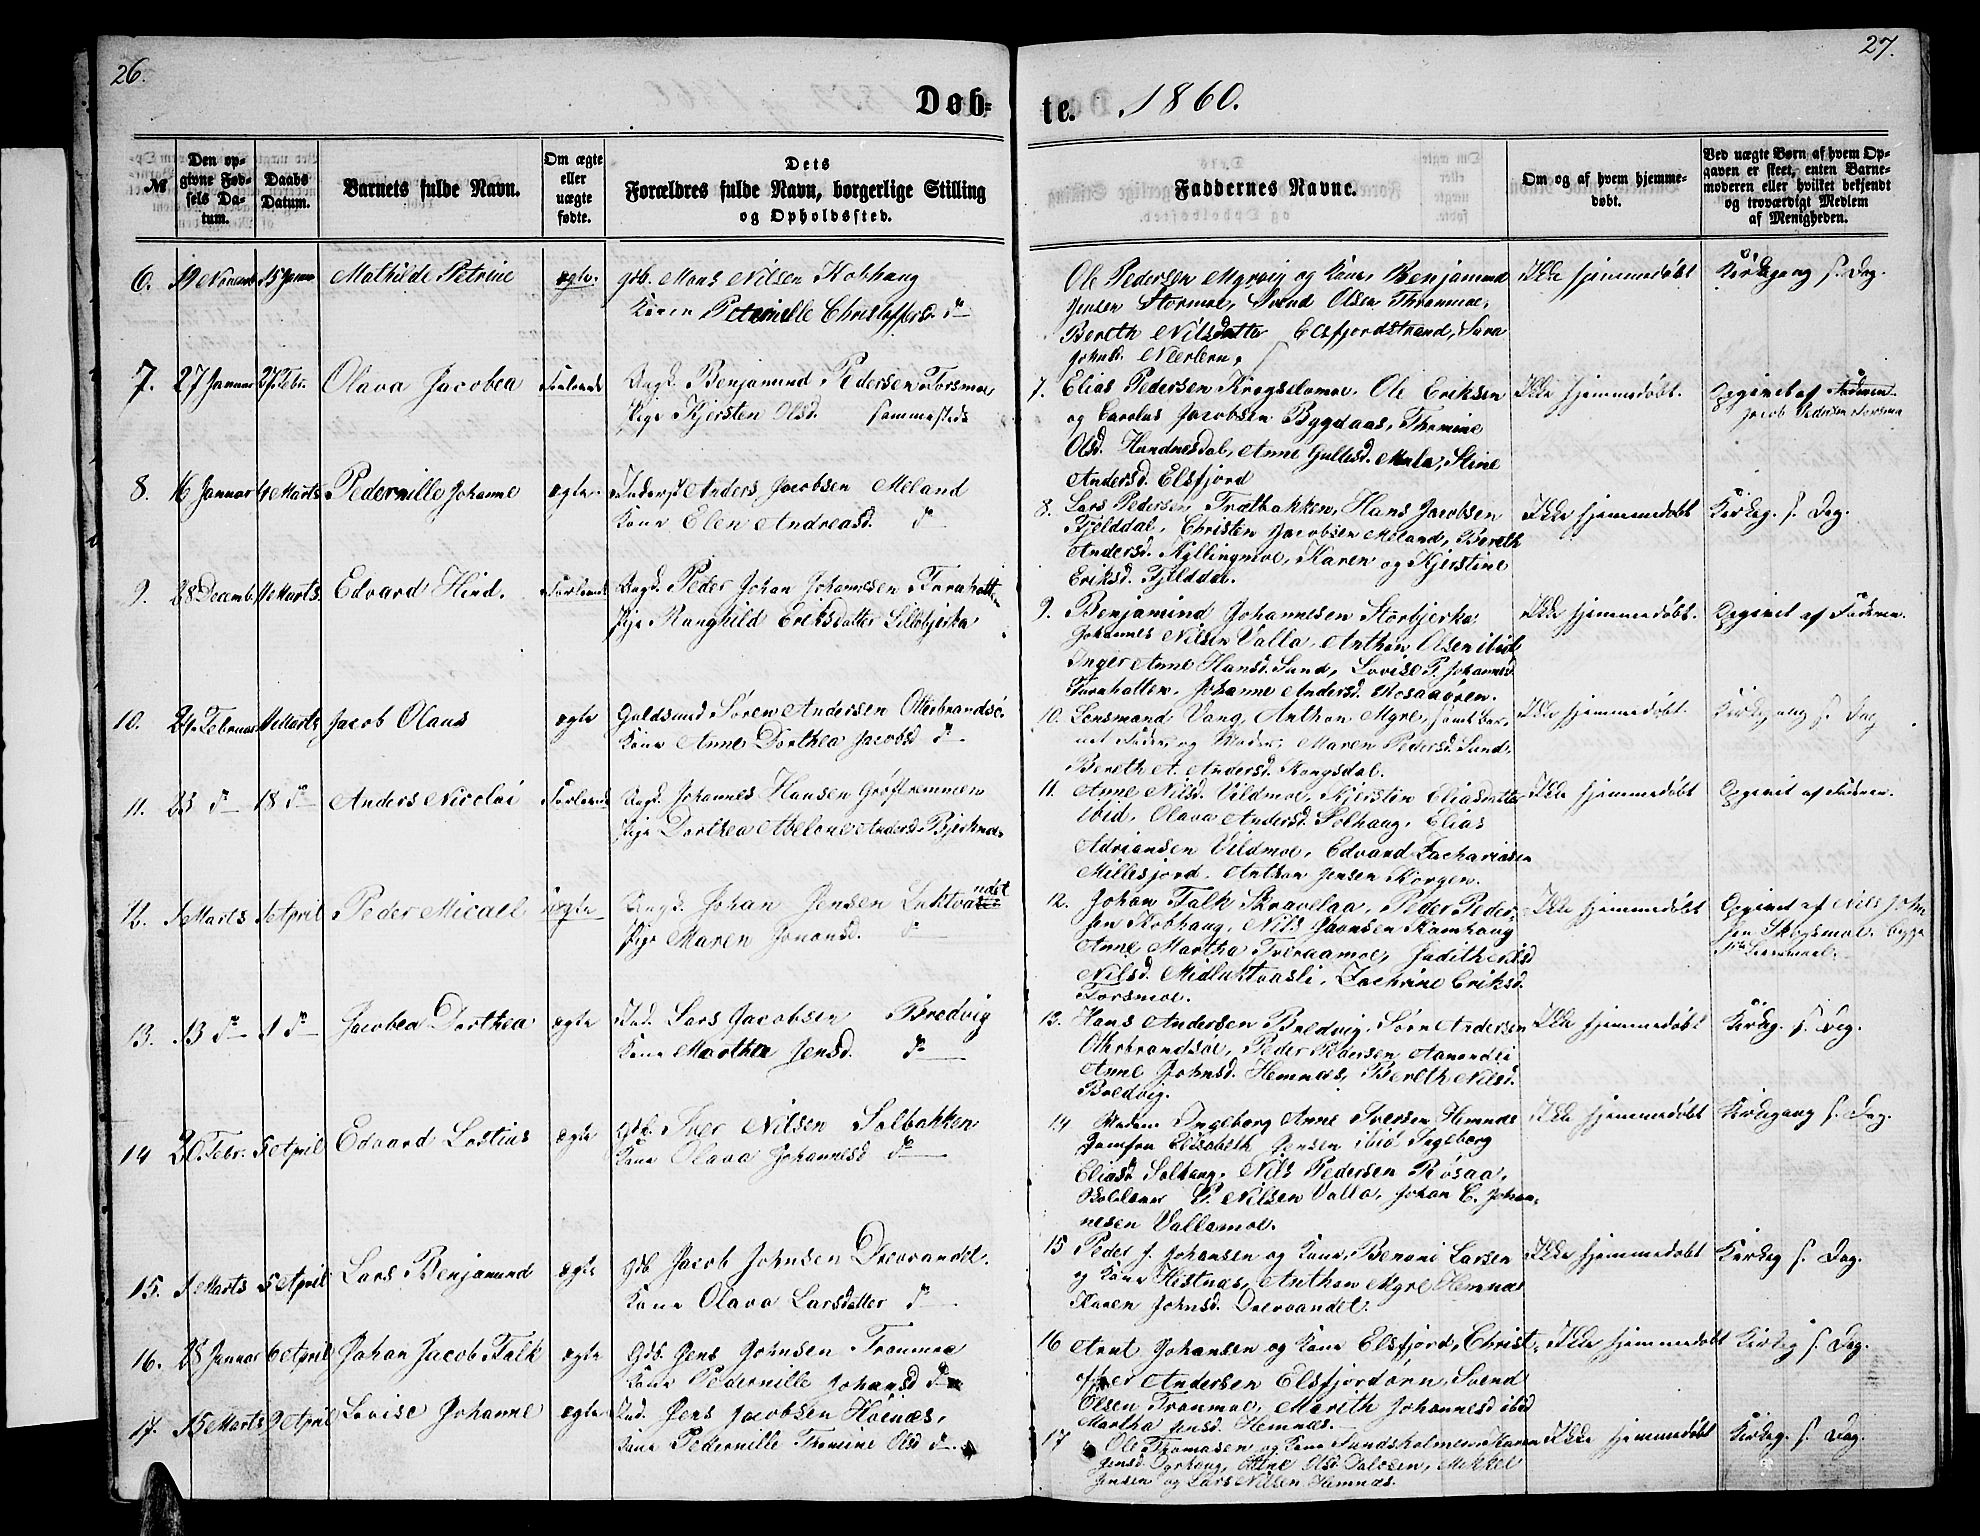 26.
27.
Døb=
te. 1860.
№
Den op=
givne Fød=
sels Da=
tum.
Daabs
Datum.
Barnets fulde Navn.
Om ægte
eller
uægte
fødte.
Dets
Forældres fulde Navn, borgerlige Stilling
og Opholdssted.
Faddernes Navne.
Om og af hvem hjemme=
døbt.
Ved uægte Børn af hvem Op=
gaven er skeet, enten Barne=
moderen eller hvilket bekjendt
og troværdigt Medlem
af Menigheden.
6. 19 Novemb 15 Januar Mathilde Petrine ægte. Gdb. Mons Nilsen Kobhaug
Kone Petrnille Christoffersd. do
Ole Pedersen Myrvig og Kone, Benjamind
Jensen Stormoe, Svend Olsen Thronmoe,
Bereth Nilsdatter Elsfjordstrand, Sara
Johnsd. Neerleen.
Ikke hjemmedøbt Kirkegang s. Dag.
7. 27 Januar 27 Febr. Olava Jacobea Ungk. Benjamind Pedersen Forsmoe
Pige Kjersten Olsd. sammesteds
7. Elias Pedersen Krogsdamoe, Ole Eriksen
og Carolus Jacobsen Bygdaas, Thomine
Olsd. Hundnesdal, Anne Gullesd. Mula, Stine
Andersd. Elsfjord
Ikke hjemmedøbt Opgivet af Faderen
Jacob Pedersen Forsmo
8. 16 Januar 4 Marts Pedernille Johanne ægte Inderst Anders Jacobsen Meland
Kone Elen Andreasd. do
8. Lars Pedersen Trætbakken, Hans Jacobsen
Fjelddal, Christen Jacobsen Meland, Bereth
Andersd. Kyllingmoe, Karen og Kjerstine
Eriksd. Fjelddal.
Ikke hjemmedøbt Kirkeg. s. Dag.
9. 28 Decemb 11 Marts Edvard Hind. Ungk. Peder Johan Johannesen Tarahatten
Pige Ranghild Eriksdatter Lillebjerka
9. Benjamind Johannesen Storbjerka
Johannes Nilsen Valla, Anthon Olsen ibid,
Inger Anne Hansd. Sund, Lovise P. Johannesd.
Tarahatten, Johanne Andersd. Rosaaøren.
Ikke hjemmedøbt. Opgivet af Faderen.
10. 24 Februar 11 Marts Jacob Olaus ægte Guldsmed Søren Andersen Otterbrandsø.
Kone Anne Dorthea Jacobsd do
10. Lensmand Vang, Anthon Myre, samt Bar,
net Fader og Moder, Maren Pedersd. Sund,
Bereth A. Andersd. Kongsdal.
Ikke hjemmedøbt. Kirkegang s. Dag
11. 23 do 18 do Anders Nicolai Ungk. Johannes Hansen Grøftremmen
Pige Dorthea Abelone Andersd. Bjerkmoe
11. Anne Nilsd. Vildmoe, Kjersten Eliasdatter
ibid, Olava Andersd. Solhaug, Elias
Adriansen Vildmoe, Edvard Zachariasen
Millesjord, Anthon Jensen Korgen.
Ikke hjemmedøbt Opgivet af Faderen.
12. 1 Marts 1 April Peder Micael Uægte Ungk. Johan Jensen Luktvandet
Pige Maren Jonansd. do
12. Johan Falk Skravelaa, Peder Peder,
sen Kobhaug, Nils Paavsen Kamhaug
Anne Martha Tveraamoe, Judith
Nilsd. Midluktvasli, Zachrine Eriksd.
Forsmoe.
Ikke hjemmedøbt Opgivet af Nils John
sen Skogsmoe, begge
13. 13 do 1 do Jacobea Dorthea ægte Ind. Lars Jacobsen Bredvig
Kone Marthea Jensd. do
13. Hans Andersen Bredvig, Søren Andersen
Otterbrandsøe, Peder Pedersen Aanonli
Anne Johnsd. Hemnæs, Bereth Nilsd.
Bredvig.
Ikke hjemmedøbt Kirkeg. s. Dag.
14 20. Febr. 5 April Edvard Lostius ægte Gdb. Iver Nilsen Solbakken
Kone Olava Johannesd do
14 Madam Ingeborg Anne Iversen Hemnæs
Jomfru Elisabeth Jensen ibid Ingeborg
Eliasd Solhaug, Nils Pedersen Røsaa,
P. Nilsen Valla, Johan C. Johan,
nesen Vallamoe.
Ikke hjemmedøbt Kirkegang s. Dag.
15. 1 Marts 5 April Lars Benjamind ægte Gdb Jacob Johnsen Drevvandet.
Kone Olava Larsdatter do
15 Peder J. Johansen og Kone, Benoni Larsen
og Kone Hestnæs, Anthon Myre Hemnæs
Karen Johnsd. Drevvandet.
Ikke hjemmedøbt Kirkeg s. Dag.
16. 28 Januar 6 April Johan Jacob Falk ægte Gdb. Jens Johnsen Tronmoe
Kone Pedernille Johansd do
16 Arnt Johansen og Kone Elsfjord, Christ,
offer Andersen Elsfjordørn, Svend
Olsen Tronmoe, Marith Johannesd ibid
Martha Jensd. Hemnæs.
Ikke hjemmedøbt Kirkeg s. Dag.
17. 15 Marts 9 April Lovise Johanne ægte Ind. Jens Jacobsen Høinæs,
Kone Pedernille Thomine Olsd do
17 Ole Thomasen og Kone Sundsholmen, Karen
Jensd. Dyrhaug, Anne Olsd. Dalosen, Mikkel
Jensen og Lars Nilsen Hemnæs.
Ikke hjemmedøbt Kirkeg. s. Dag.